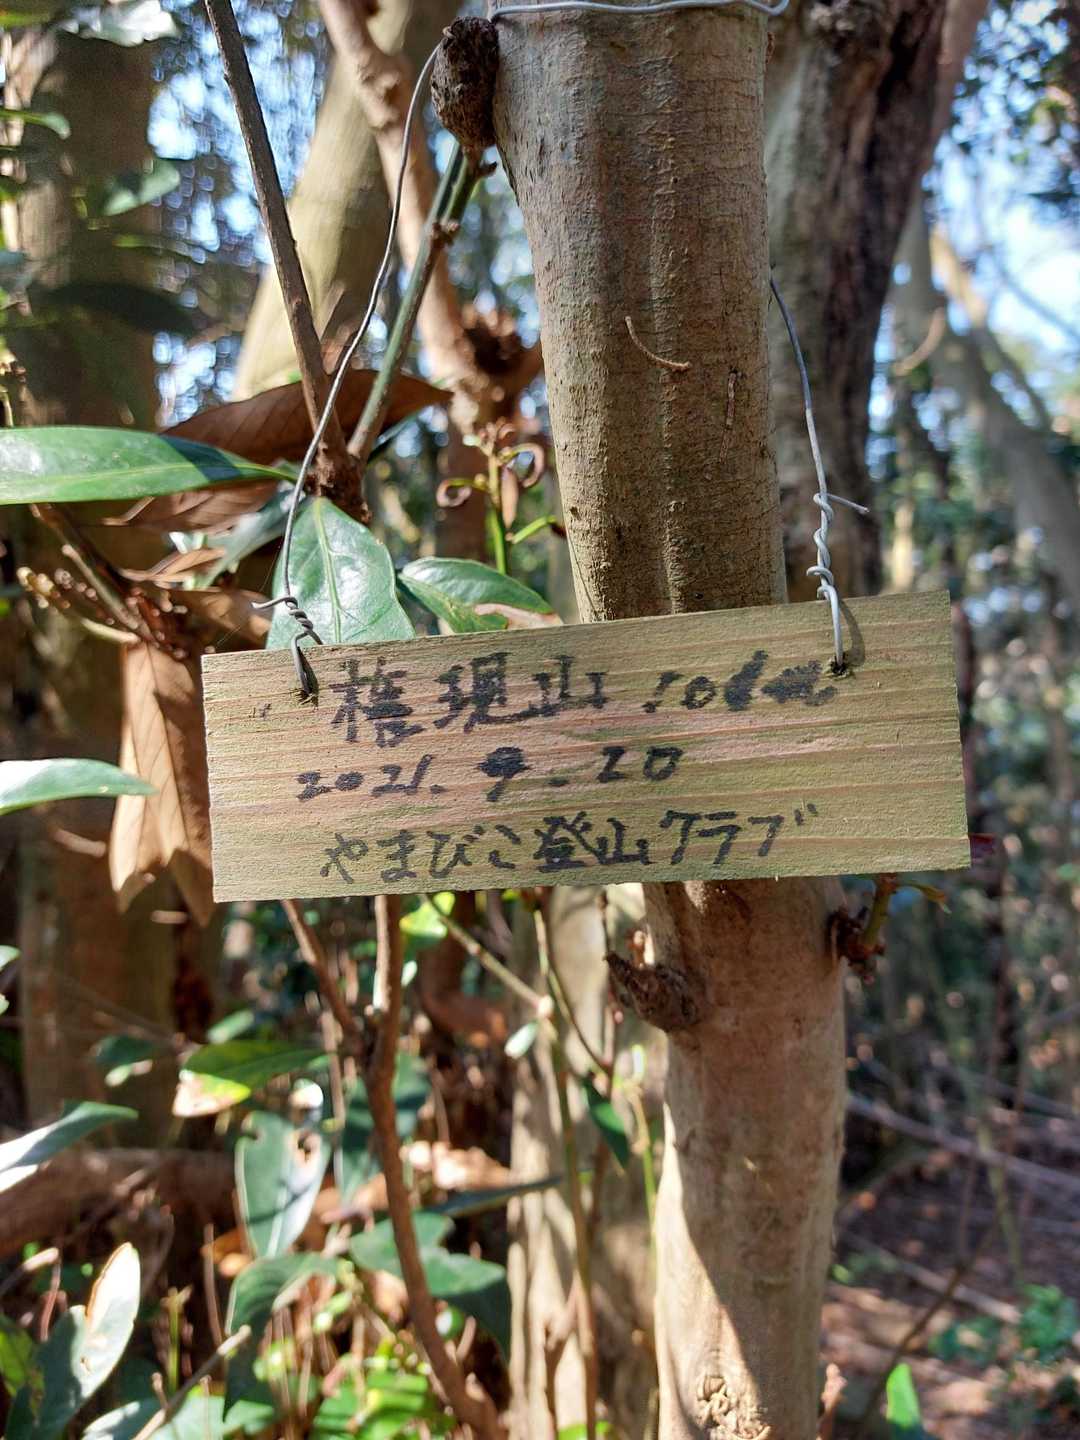 権現山
2021. 9. 20
やまびこ登山クラブ